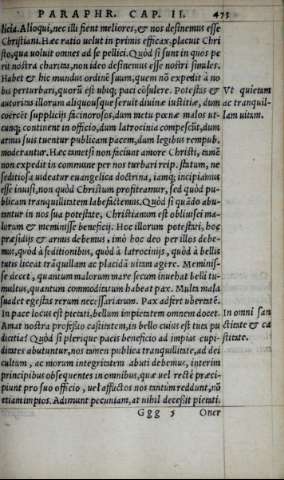 PARAPHR. CAP. II. 473
licia. Alioqui, nec illi fient meliores, & nos desinemus esse
Christiani. Hæc ratio uelut in primis efficax, placuit Chri
sto, qua uoluit omnes ad se pellici. Quòd si sunt in quos pe
rit nostra charitas, non ideo desinemus esse nostri similes.
Habet & hic mundus ordinē suum, quem nō expedit à no
bis perturbari, quorū est ubiq; paci cōsulere. Potestas &
autoritas illorum aliquousque seruit diuinæ iustitiæ, dum
coërcēt supplicijs facinorosos, dum metu pœnæ malos ut-
cunq; continent in officio, dum latrocinia compescūt, dum
armis suis tuentur publicam pacem, dum legibus rempub.
moderantur. Hæc tametsi non faciunt amore Christi, tamē
non expedit in commune per nos turbari reip. statum, ne
seditiosa uideatur euangelica doctrina, iamq; incipiamus
esse inuisi, non quòd Christum profiteamur, sed quòd pu-
blicam tranquillitatem labefactemus. Quòd si quādo abu-
tuntur in nos sua potestate, Christianum est obliuisci ma-
lorum & meminisse beneficij. Hoc illorum potestati, hoc
præsidijs & armis debemus, imò hoc deo per illos debe-
mus, quòd à seditionibus, quòd à latrocinijs, quòd à bellis
tutis liceat trāquillam ac placidā uitam agere. Meminis-
se decet, quantum malorum mare secum inuehat belli tu-
multus, quantum commoditatum habeat pax. Multa mala
suadet egestas rerum necessariarum. Pax adfert ubertatē.
In pace locus est pietati, bellum impietatem omnem docet.
Amat nostra professio castitatem, in bello cuius est tuta pu
dicitia? Quòd si plerique pacis beneficio ad impias cupi-
ditates abutuntur, nos tamen publica tranquillitate, ad dei
cultum, ac morum integritatem abuti debemus, interim
principibus obsequentes in omnibus, quæ uel rectè præci-
piunt pro suo officio, uel affectos nos tantum reddunt, nō
etiam impios. Adimunt pecuniam, at nihil decessit pietati.
Ggg 5 Oner
Vt quietam
ac tranquil-
lam uitam.
In omni san
ctitate & ca
stitate.